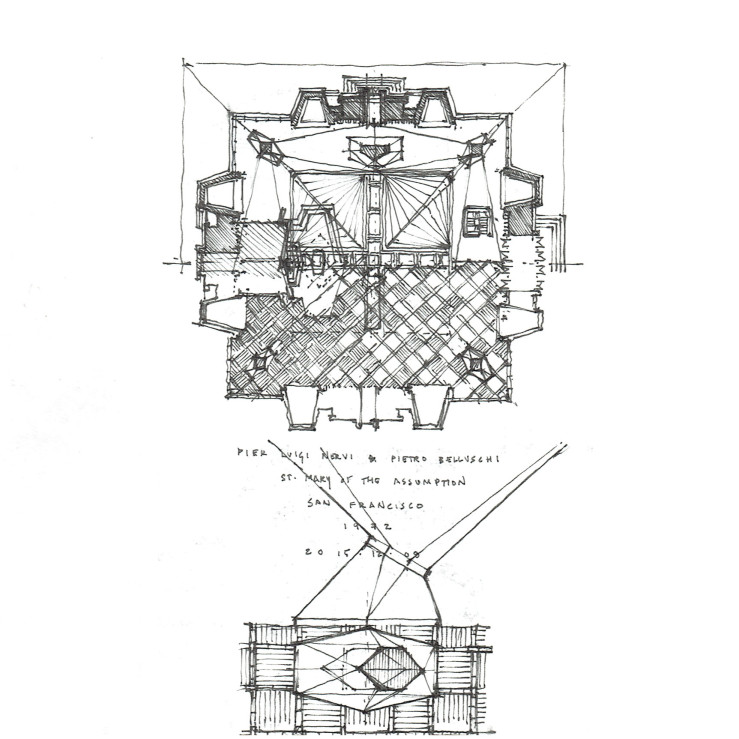 PIER LUIGI NERVI & PIETRO BELLUSCHI
ST. MARY OF THE ASSUMPTION
SAN FRANCISCO
1972
2015.12.08